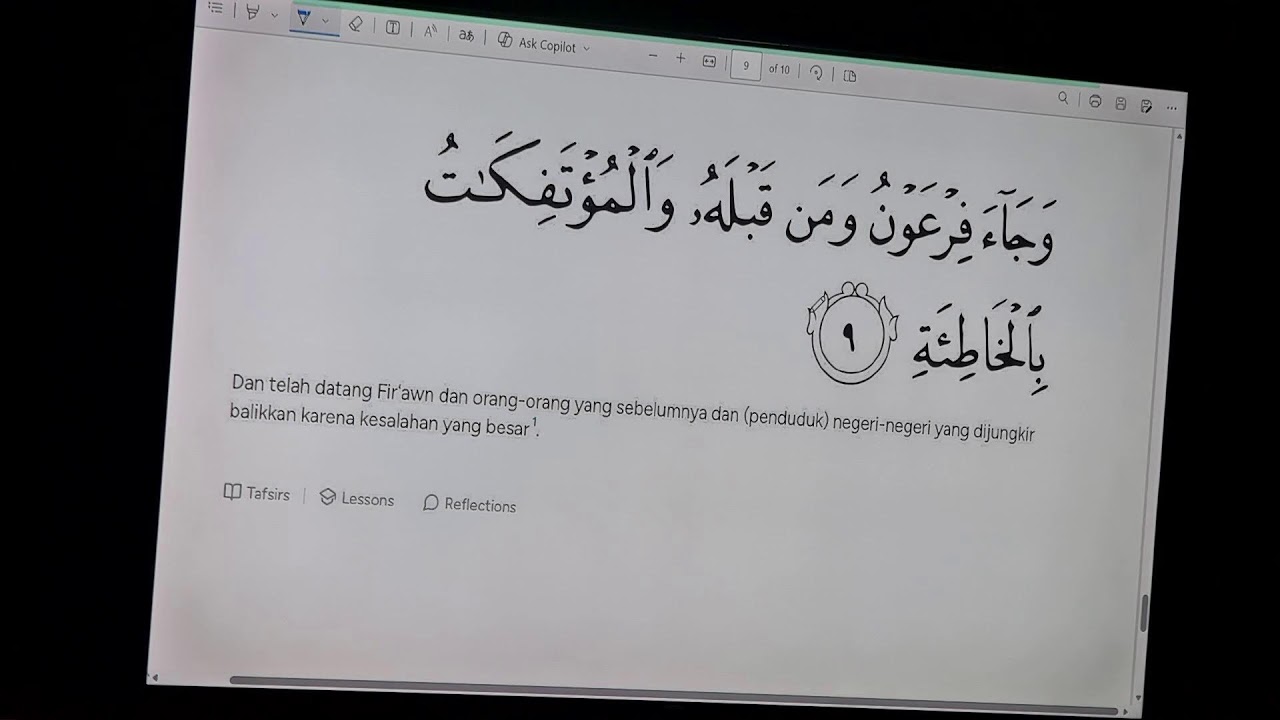 Ask Copilot
9 of 10
وَجَآءَ فِرْعَوْنُ وَمَن قَبْلَهُۥ وَٱلْمُؤْتَفِكَـٰتُ
بِٱلْخَاطِئَةِ ٩
Dan telah datang Fir‘awn dan orang-orang yang sebelumnya dan (penduduk) negeri-negeri yang dijungkir
balikkan karena kesalahan yang besar¹.
Tafsirs | Lessons Reflections